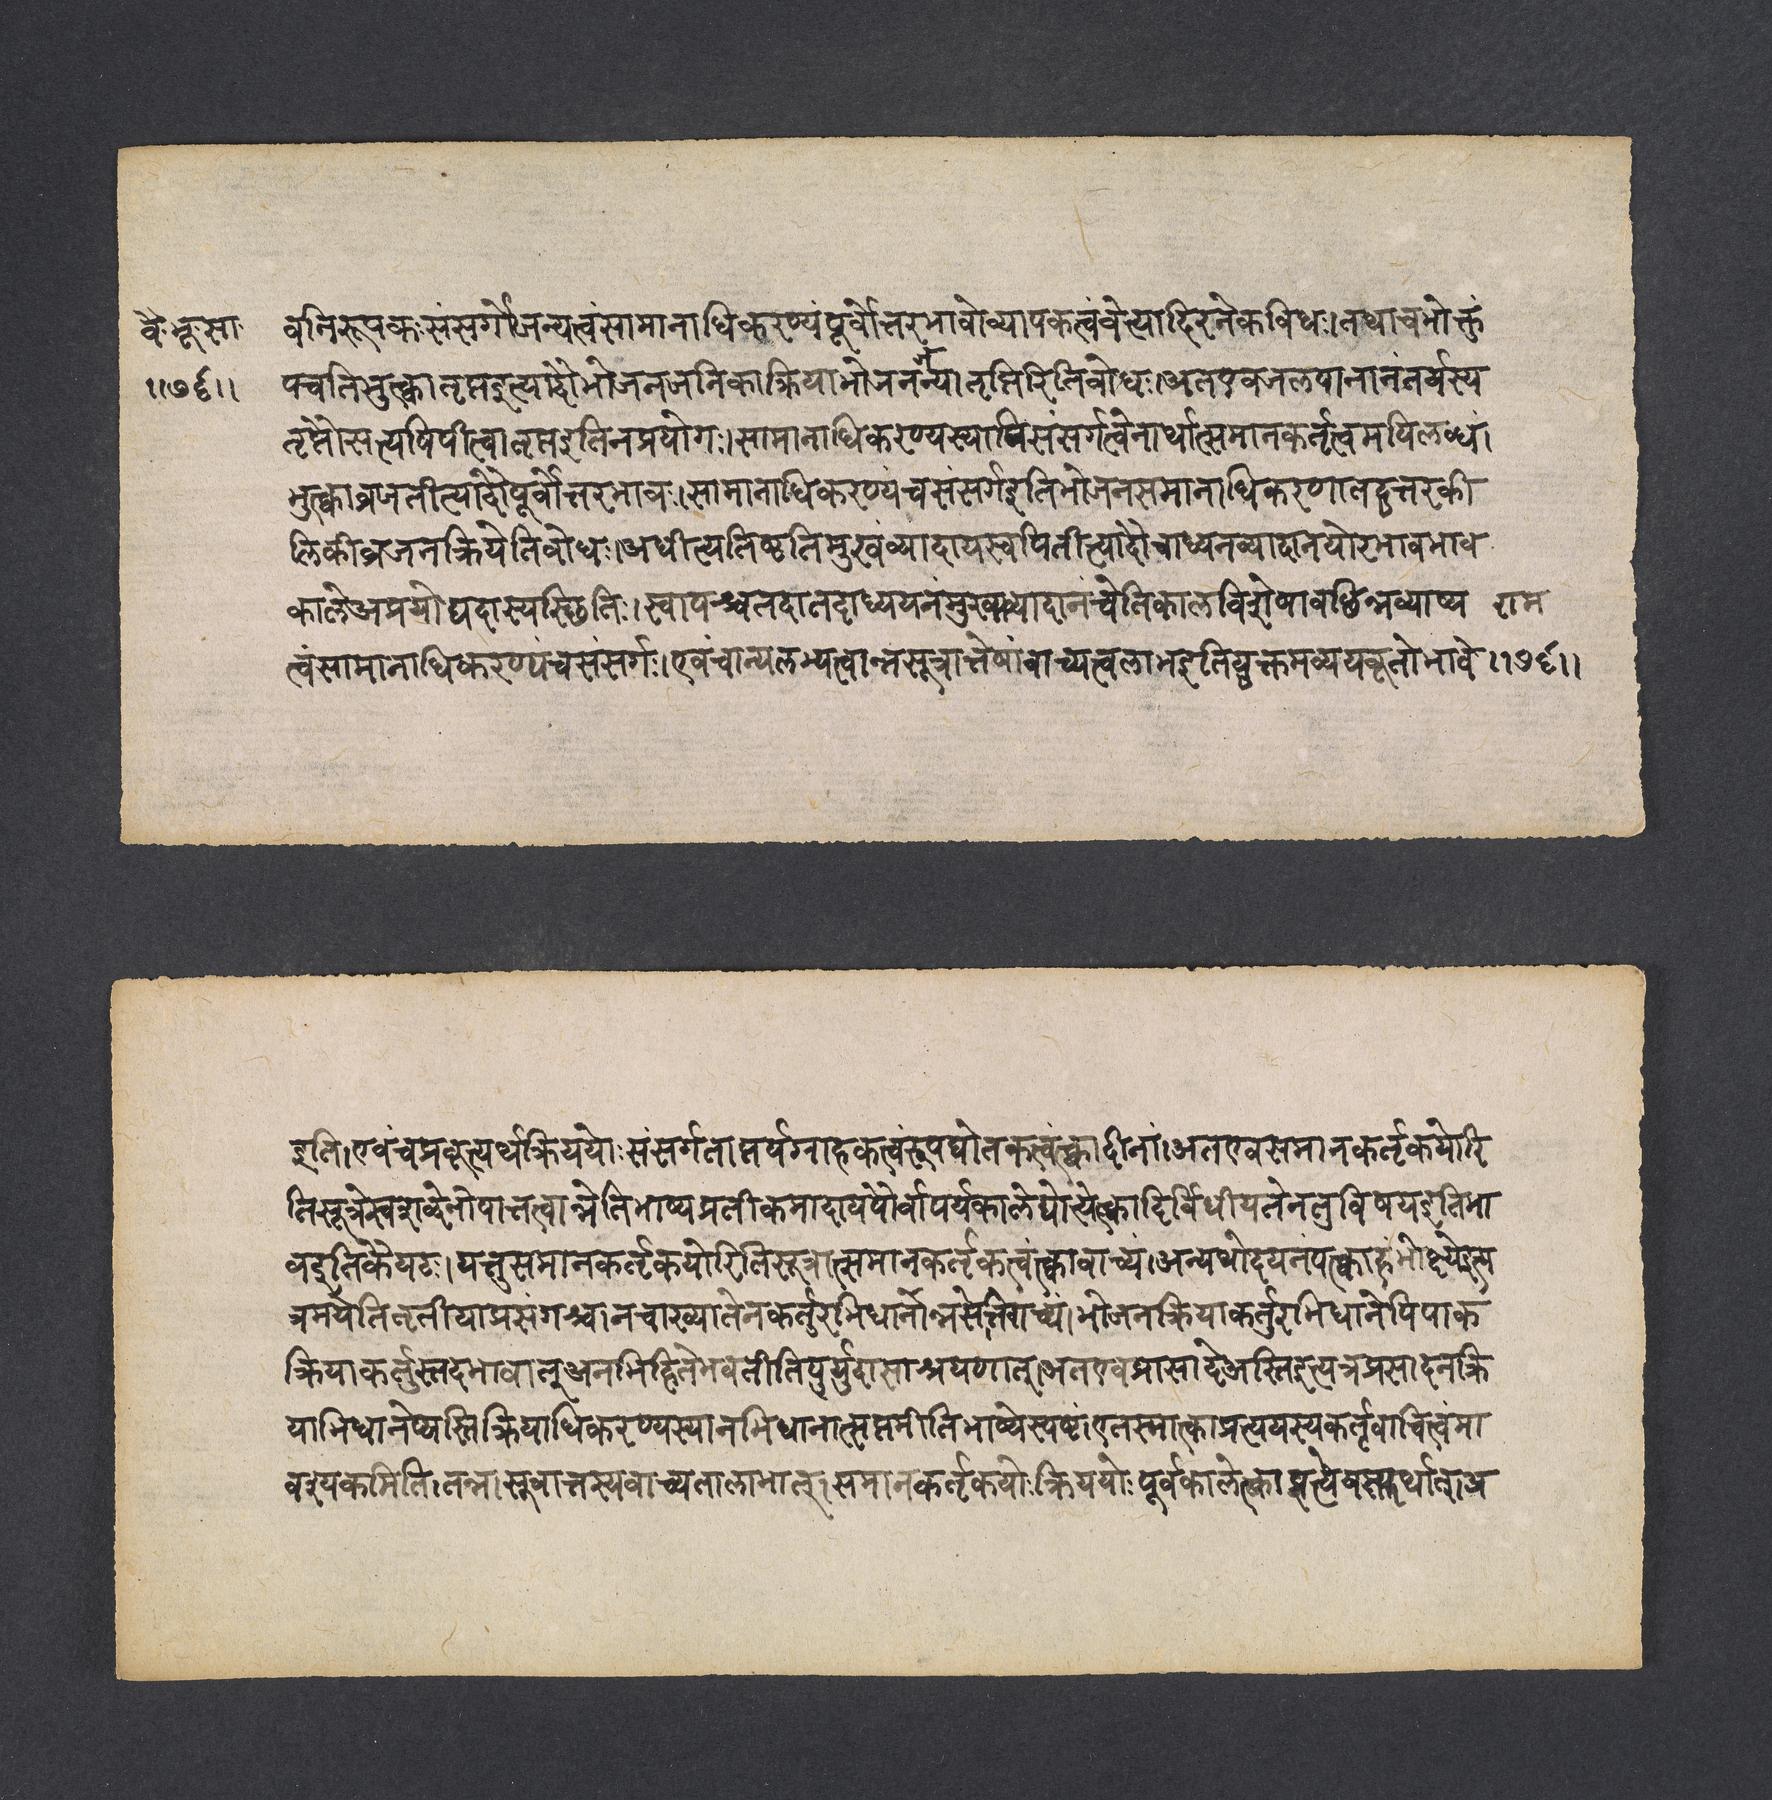 वै॰भू॰सा॰
॥७६॥
वनिरूपकःसंसर्गोजन्यत्वंसामानाधिकरण्यंपूर्वोत्तरभावोव्यापकत्वंवेत्यादिरनेकविधः।तथाचभोक्तुं
पचतिभुक्त्वातृप्तइत्यादौभोजनजनिकाक्रियाभोजनजन्यातृप्तिरितिबोधः।अतएवजलपानानंतर्यस्य
तृप्तौसत्यपिपीत्वातृप्तइतिनप्रयोगः।सामानाधिकरण्यस्यापिसंसर्गत्वेनार्थात्समानकर्तृत्वमपिलब्धं।
भुक्त्वाव्रजतीत्यादौपूर्वोत्तरभावः।सामानाधिकरण्यंचसंसर्गइतिभोजनसमानाधिकरणातदुत्तरकी
लिकीव्रजनक्रियेतिबोधः।अधीत्यतिष्ठतिमुखंव्यादायस्वपितीत्यादौचाध्यनव्यादानयोरभावभाव
कालेअप्रयोद्यदास्यस्छितिः।स्वापश्चतदातदाध्ययनंमुखव्यादानंचेतिकालविशेषावछिन्नव्याप्य
राम
त्वंसामानाधिकरण्यंचसंसर्गः।एवंचान्यलभ्यत्वान्नसूत्रात्तेषांवाच्यत्वलाभइतियुक्तमव्ययकृतोभावे
॥७६॥
इति।एवंचप्रकृत्यर्थक्रिययोःसंसर्गतात्पर्यग्राहकत्वंरूपद्योतकत्वंत्क्वादीनां।अतएवसमानकर्तृकयोरि
तिसूत्रेस्वशब्देनोपात्तत्वान्नेतिभाष्यप्रतीकमादायपौर्वापर्यकालेद्योत्येत्क्वादिर्विधीयतेनतुविषयइतिभा
वइतिकैयटः।यत्तुसमानकर्तृकयोरितिसूत्रात्समानकर्तृकत्वंत्क्वावाच्यं।अन्यथौदयनंपत्क्वाहंभोक्ष्येइत्य
त्रमयेतितृतीयाप्रसंगश्चानचाख्यातेनकर्तुरभिधानोन्नसेतिवाच्यं।भोजनक्रियाकर्तुरभिधानेपिपाक
क्रियाकर्तुस्तदभावात्अनभिहितेभवतीतिपुर्युदासाश्रयणात्।अतएवप्रासादेअस्तिइत्यत्रप्रसादनक्रि
याभिधानेप्यस्तिक्रियाधिकरण्यस्यानभिधानात्सप्तमीतिभाष्येस्पष्टं।एतस्मात्क्वाप्रत्ययस्यकर्तृवाचित्वंमा
वश्यकमिति।तन्न।सूत्रात्तस्यवाच्यतालाभात्।समानकर्तृकयोःक्रिययोःपूर्वकालेत्क्वाप्रत्येवतत्दर्थात्।अ